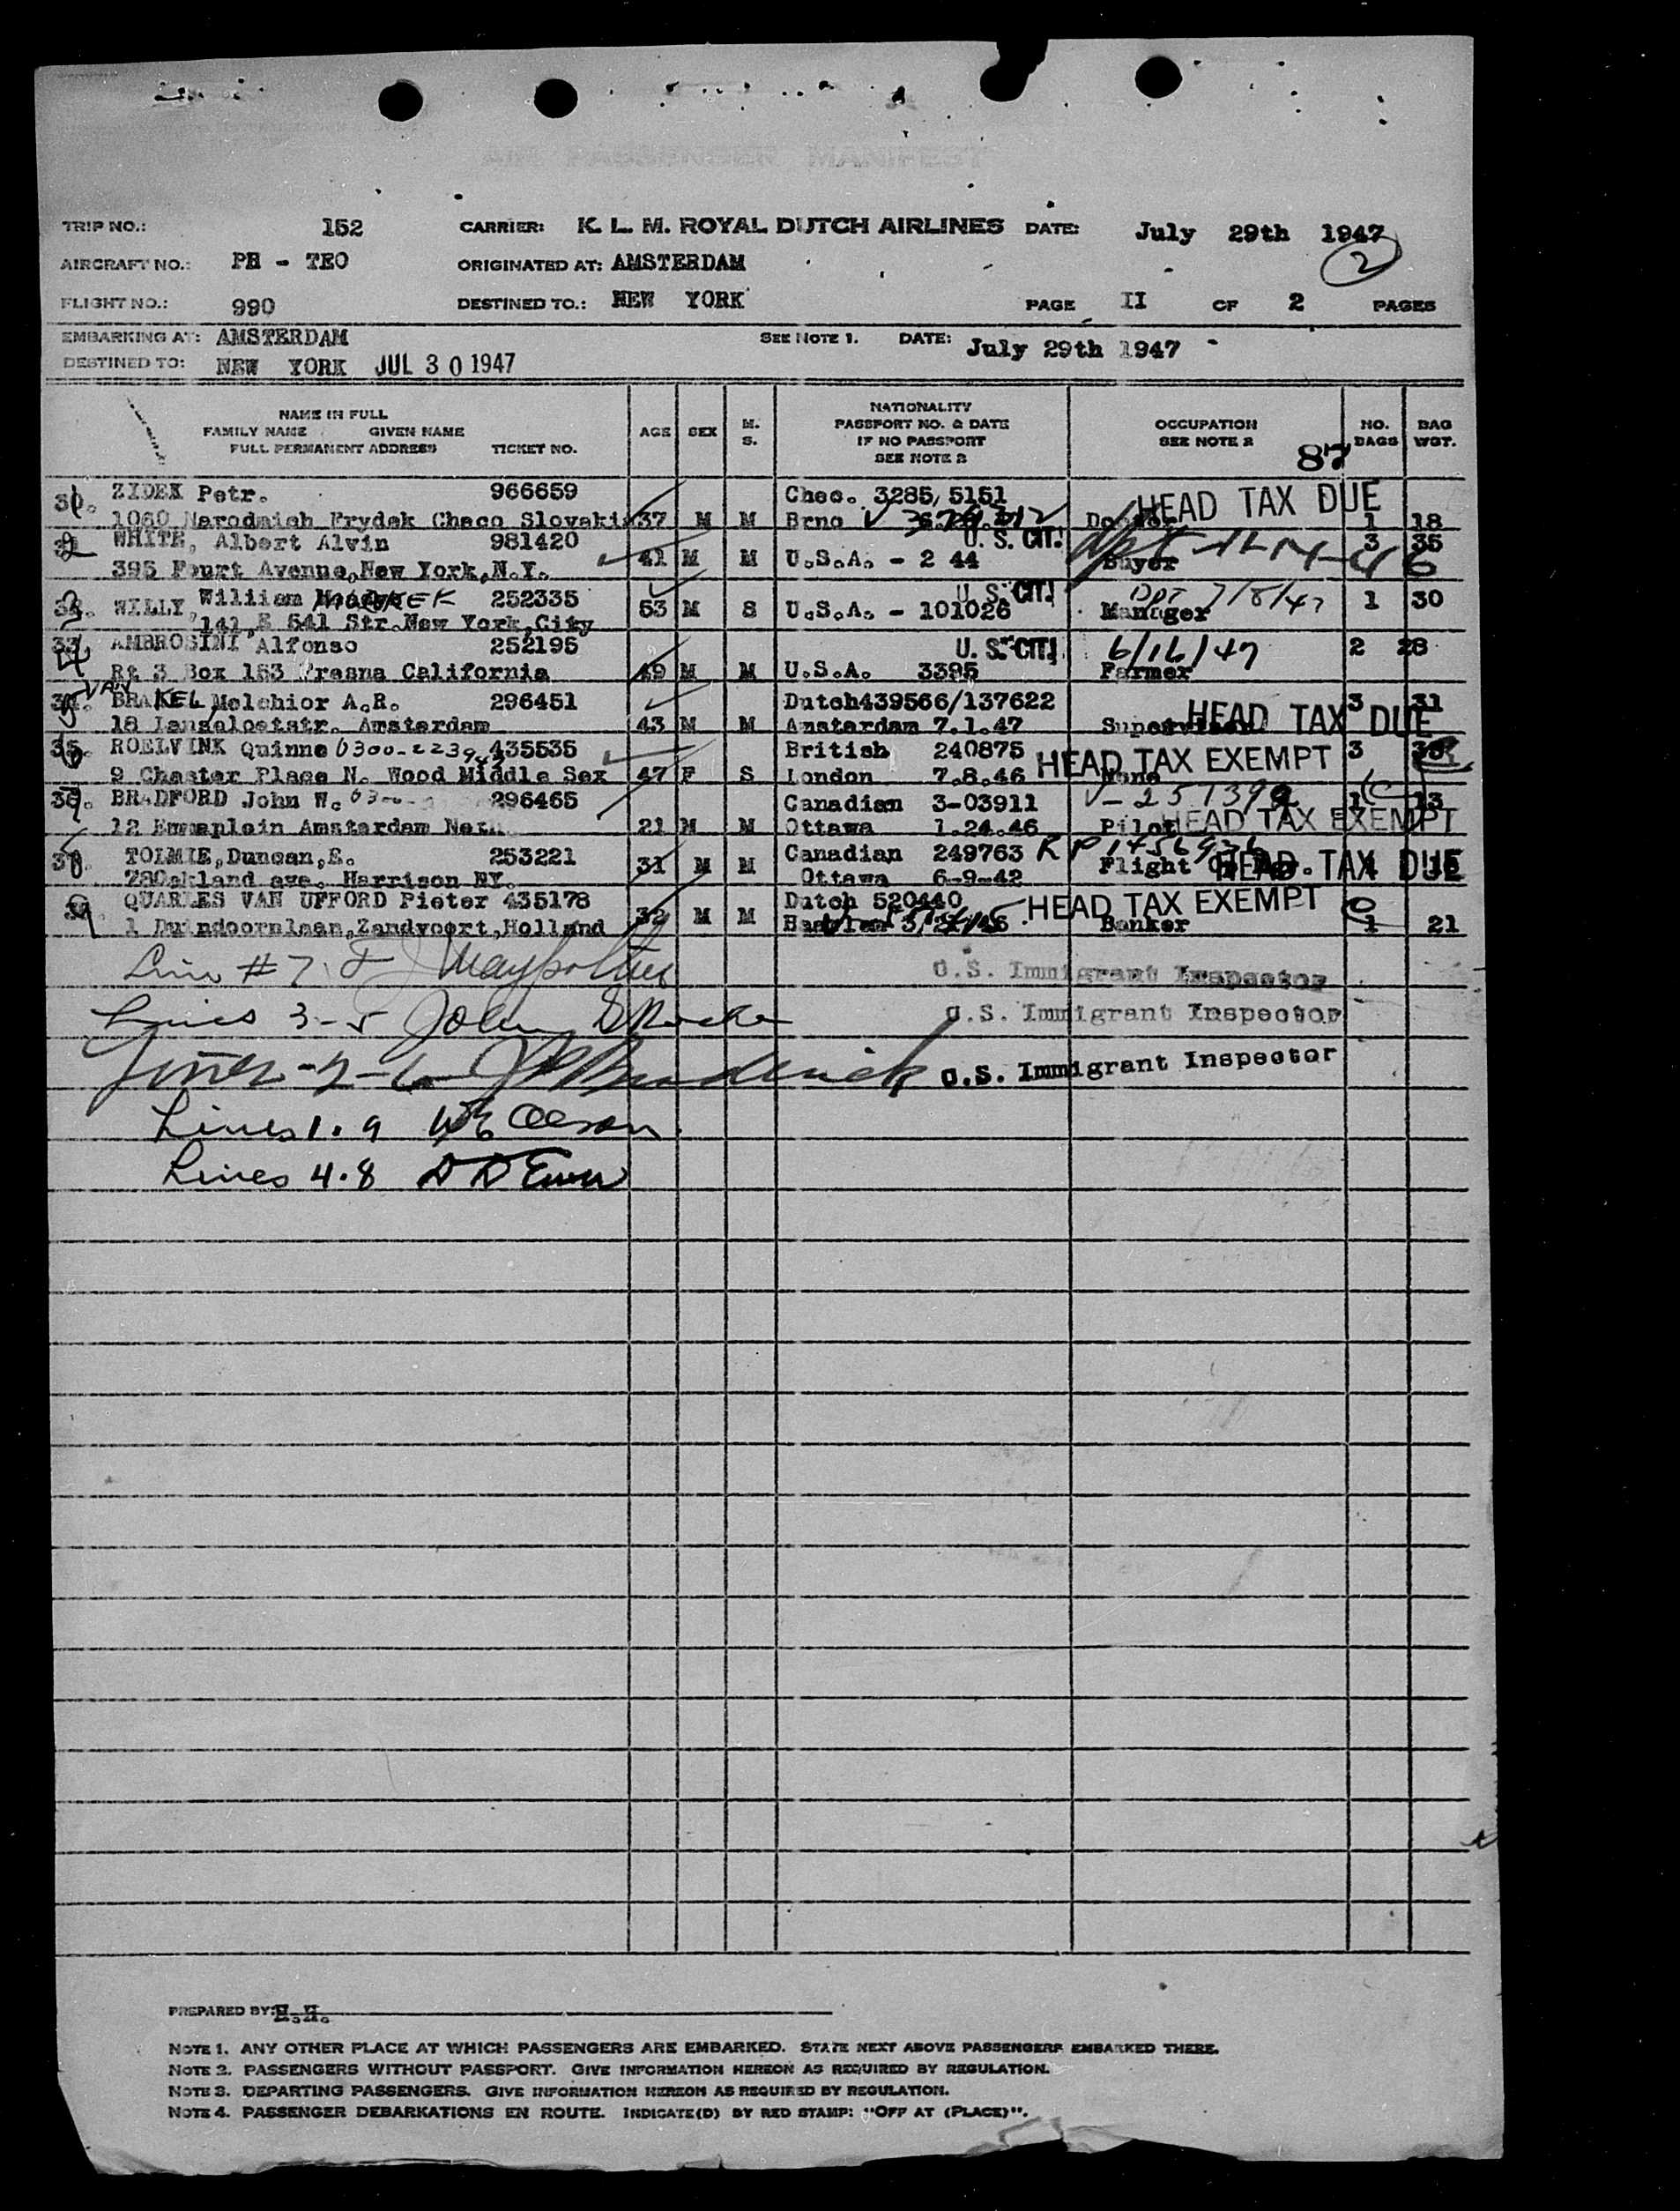 AIR PASSENGER MANIFEST
TRIP NO.: 152 CARRIER: K. L. M. ROYAL DUTCH AIRLINES DATE: July 29th 1947
2
AIRCRAFT NO.: PH - TEO ORIGINATED AT: AMSTERDAM
FLIGHT NO.: 990 DESTINED TO.: NEW YORK PAGE II OF 2 PAGES
EMBARKING AT: AMSTERDAM SEE NOTE 1. DATE: July 29th 1947
DESTINED TO: NEW YORK JUL 30 1947
NAME IN FULL
FAMILY NAME GIVEN NAME
FULL PERMANENT ADDRESS TICKET NO.
AGE SEX M. S.
NATIONALITY
PASSPORT NO. & DATE
IF NO PASSPORT
SEE NOTE 2
OCCUPATION
SEE NOTE 2
87
NO. BAGS
BAG WGT.
ZIDEK Petr. 966659 Chec. 3285/5151 HEAD TAX DUE
1060 Frydek Checo Slovakia 37 M M Brno 1 18
WHITE, Albert Alvin 981420 U. S. CIT. 3 35
395 Fourt Avenue, New York, N.Y. 41 M M U.S.A. - 2 44 Buyer
WILLY, William 252335 U. S. CIT. 7/8/47
141 E 541 Str. New York, City 53 M S U.S.A. - 101026 Manager 1 30
AMBROSINI Alfonso 252195 U. S. CIT. 6/16/47 2 28
Rt 3 Box 153 Fresna California 49 M M U.S.A. 3395 Farmer
VAN BRAKEL Melchior A.R. 296451 Dutch 439566/137622 3 31
Amsterdam 43 M M Amsterdam 7.1.47 Supervisor HEAD TAX DUE
ROELVINK Quinne 0300-2239 435535 British 240875 HEAD TAX EXEMPT 3
9 Chester Place N. Wood Middle Sex 47 F S London 7.8.46 None
BRADFORD John W. 296465 Canadian 3-03911 V-257392 1 13
12 Emmaplein Amsterdam 21 M M Ottawa 1.24.46 Pilot HEAD TAX EXEMPT
TOLMIE, Duncan, E. 253221 Canadian 249763
Oakland ave. Harrison NY. 31 M M Ottawa 6-9-42 Flight HEAD TAX DUE
QUARLES VAN UFFORD Pieter 435178 Dutch 520440 HEAD TAX EXEMPT
1 Duindoornlaan, Zandvoort, Holland 32 M M Banker 1 21
Line #7 U.S. Immigrant Inspector
Lines 3-5 John U.S. Immigrant Inspector
Lines -2-6 Broderick U.S. Immigrant Inspector
Lines 1.9
Lines 4.8
PREPARED BY: H.H.
NOTE 1. ANY OTHER PLACE AT WHICH PASSENGERS ARE EMBARKED. STATE NEXT ABOVE PASSENGERS EMBARKED THERE.
NOTE 2. PASSENGERS WITHOUT PASSPORT. GIVE INFORMATION HEREON AS REQUIRED BY REGULATION.
NOTE 3. DEPARTING PASSENGERS. GIVE INFORMATION HEREON AS REQUIRED BY REGULATION.
NOTE 4. PASSENGER DEBARKATIONS EN ROUTE. INDICATE(D) BY RED STAMP: "OFF AT (PLACE)".